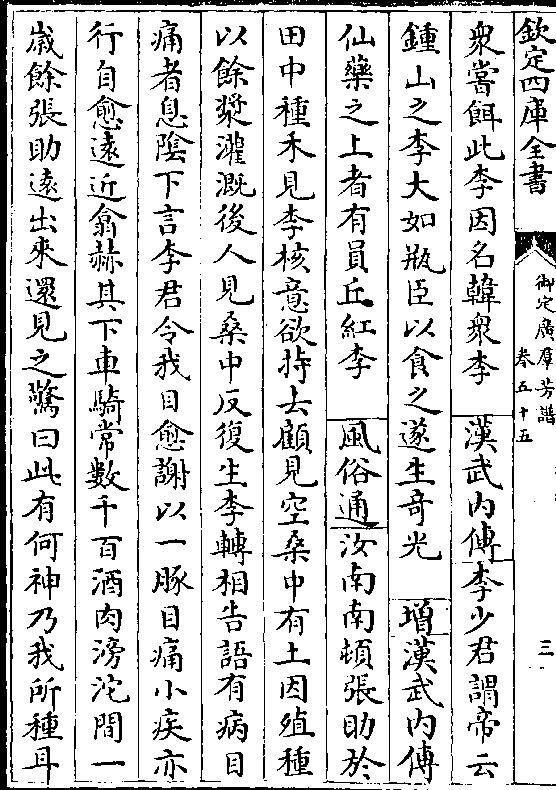 欽定四庫全書
御定廣群芳譜
卷五十五
三
衆嘗餌此李因名韓衆李　漢武內傳李少君謂帝云
鍾山之李大如瓶臣以食之遂生奇光　增漢武內傳
仙藥之上者有員丘紅李　風俗通汝南南頓張助於
田中種禾見李核意欲持去顧見空桑中有土因殖種
以餘漿灌溉後人見桑中反復生李轉相告語有病目
痛者息陰下言李君令我目愈謝以一豚目痛小疾亦
行自愈遠近翕赫其下車騎常數千百酒肉滂沱間一
歲餘張助遠出來還見之驚曰此有何神乃我所種耳